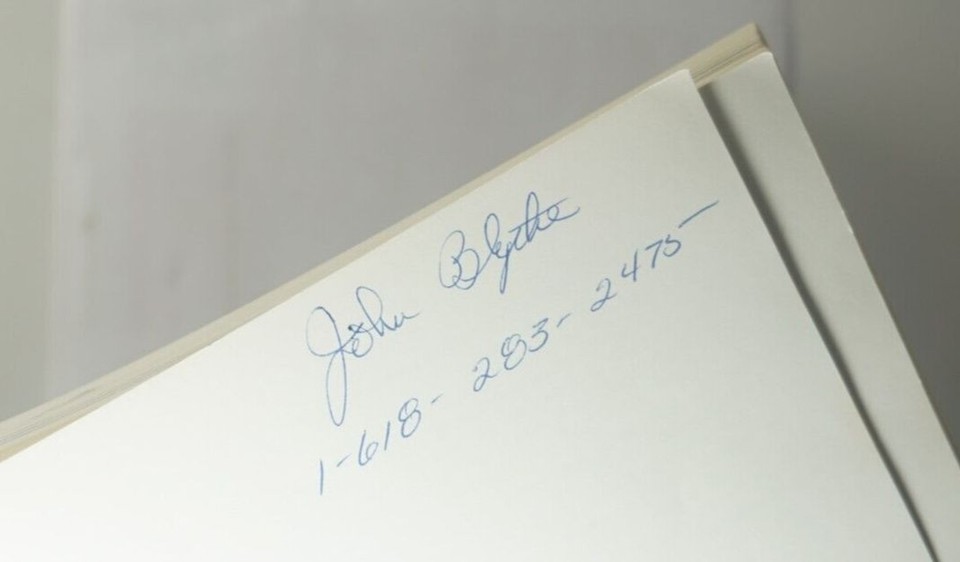 John Blythe
1-618-283-2475